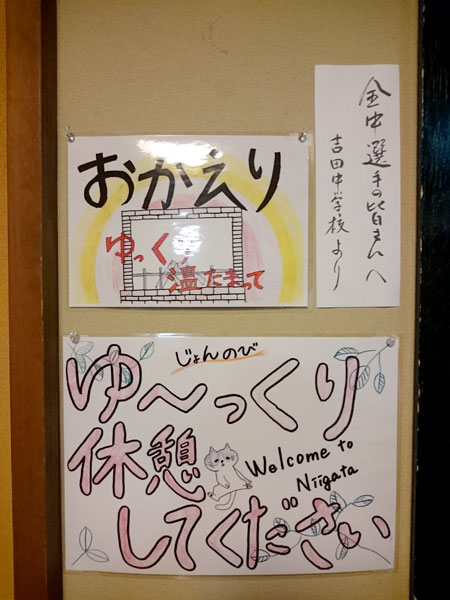 おかえり
ゆっくり
温たまって
全中選手の皆さんへ
吉田中学校より
じょんのび
ゆ～っくり
休憩
Welcome to
Niigata
してください